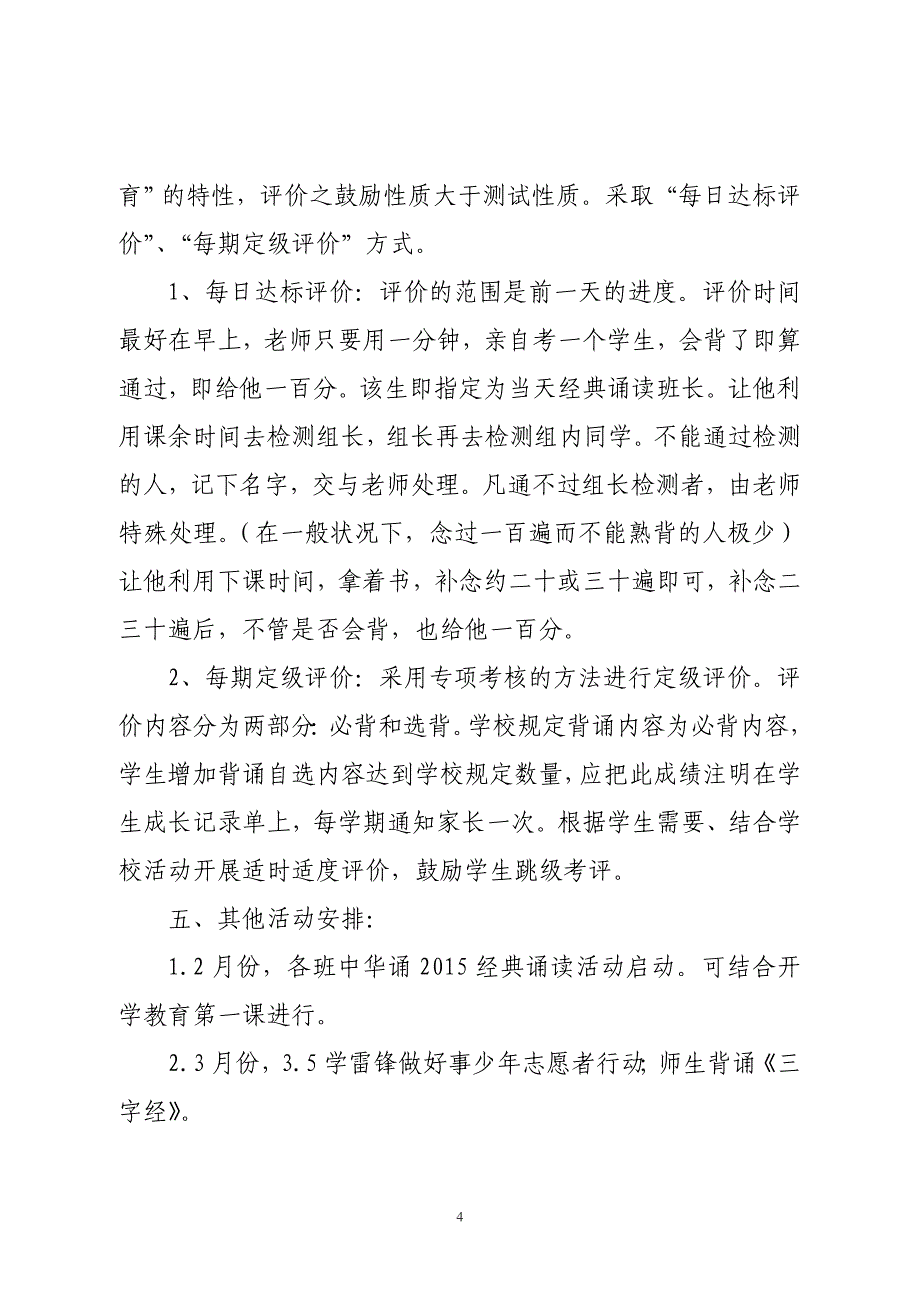 育”的特性，评价之鼓励性质大于测试性质。采取“每日达标评
价”、“每期定级评价”方式。
1、每日达标评价：评价的范围是前一天的进度。评价时间
最好在早上，老师只要用一分钟，亲自考一个学生，会背了即算
通过，即给他一百分。该生即指定为当天经典诵读班长。让他利
用课余时间去检测组长，组长再去检测组内同学。不能通过检测
的人，记下名字，交与老师处理。凡通不过组长检测者，由老师
特殊处理。（在一般状况下，念过一百遍而不能熟背的人极少）
让他利用下课时间，拿着书，补念约二十或三十遍即可，补念二
三十遍后，不管是否会背，也给他一百分。
2、每期定级评价：采用专项考核的方法进行定级评价。评
价内容分为两部分：必背和选背。学校规定背诵内容为必背内容，
学生增加背诵自选内容达到学校规定数量，应把此成绩注明在学
生成长记录单上，每学期通知家长一次。根据学生需要、结合学
校活动开展适时适度评价，鼓励学生跳级考评。
五、其他活动安排：
1.2月份，各班中华诵2015经典诵读活动启动。可结合开
学教育第一课进行。
2.3月份，3.5学雷锋做好事少年志愿者行动；师生背诵《三
字经》。
4